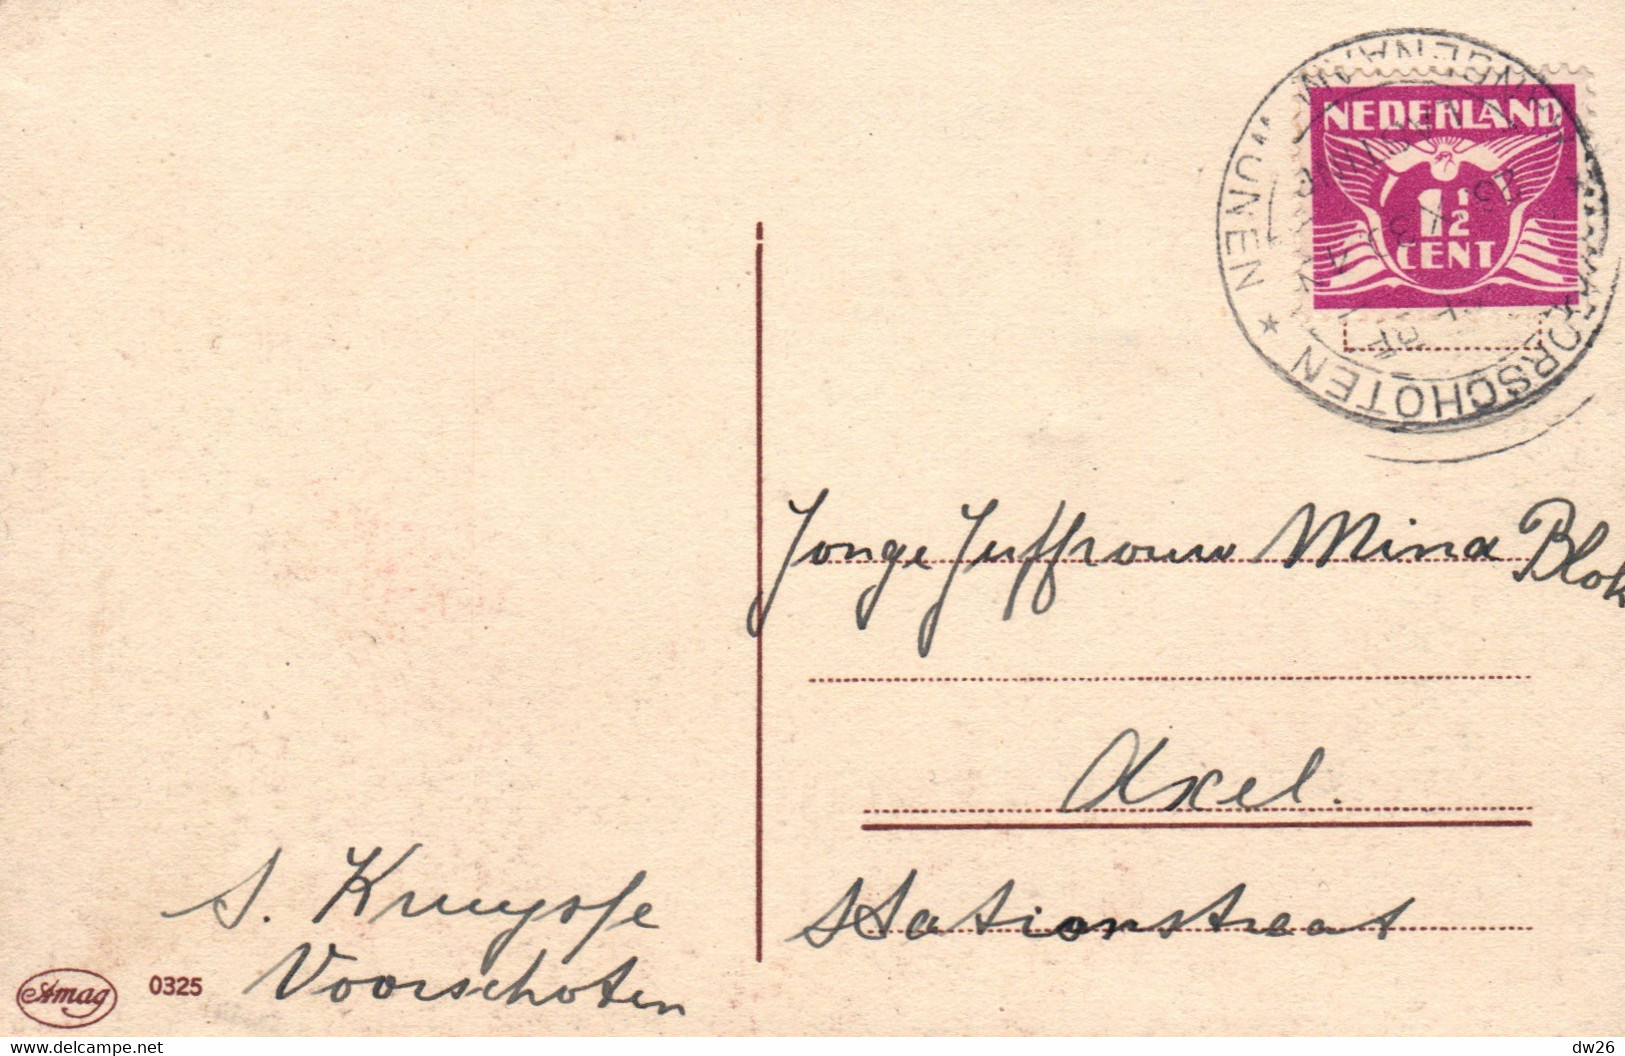 NEDERLAND
1½
CENT
VOORSCHOTEN
WONEN
Jonge Juffrouw Mina Blok
Axel.
Stationstraat
S. Kruysse
Voorschoten
Amag 0325
https://www.delcampe.net
dw26